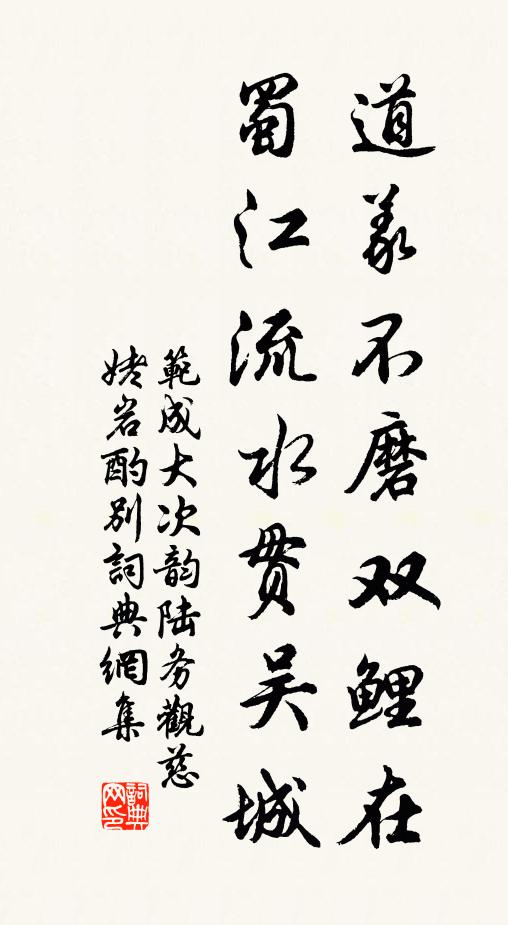 道义不磨双鲤在
蜀江流水贯吴城
範成大次韵陆务觀慈
姥岩酌别詞典網集
詞典
网印